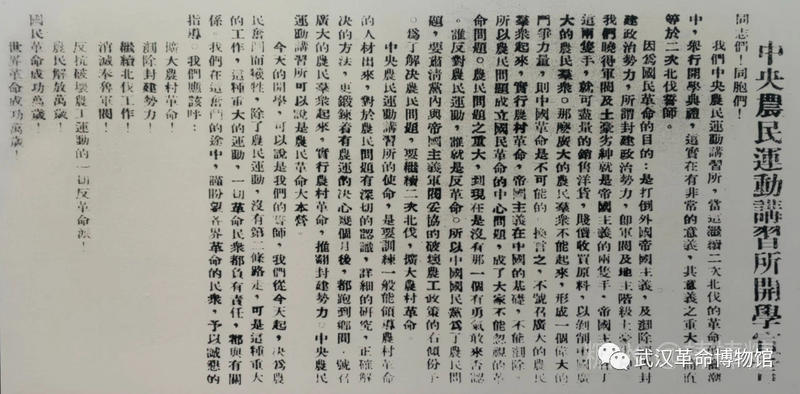 中央農民運動講習所開學宣言
同志們！同胞們！
我們中央農民運動講習所，當這繼續二次北伐的革命
中，舉行開學典禮，這實在有非常的意義，其意義之重大
等於二次北伐誓師。
因爲國民革命的目的：是打倒外國帝國主義，及剷除
建政治勢力，所謂封建政治勢力，卽軍閥及地主階級土豪
我們曉得軍閥及土豪劣紳就是帝國主義的兩隻手，帝國主義
這兩隻手，就可盡量的銷售洋貨，賤價收買原料，以剝削中國廣
大的農民羣衆。那麽廣大的農民羣衆不能起來，形成一個偉大的
鬥爭力量，則中國革命是不可能的，換言之，不號召廣大的農民
羣衆起來，實行農村革命，帝國主義在中國的基礎，不能剷除，
所以農民問題成立國民革命的中心問題，成了大家不能忽視的革
命問題。農民問題之重大，到現在是沒有那一個有勇氣敢來否認
。誰反對農民運動，誰就是反革命。所以中國國民黨爲了農民問
題，要肅清黨內與帝國主義軍閥妥協的破壞農工政策的右傾份子
。爲了解决農民問題，要繼續二次北伐，擴大農村革命。
中央農民運動講習所的使命，是要訓練一般能領導農村革命
的人材出來，對於農民問題有深切的認識，詳細的研究，正確解
决的方法，更鍛鍊着有農運的决心，幾個月後，都跑到鄉間，號召
廣大的農民羣衆起來，實行農村革命，推翻封建勢力。中央農民
運動講習所可以說是農民革命大本營。
今天的開學，可以說是我們的誓師，我們從今天起，决爲農
民奮鬥而犧牲，除了農民運動，沒有第二條路走，可是這種重大
的工作，這種重大的運動，一切革命民衆都負有責任，都與有關
係。我們在這奮鬥的途中，謹盼望各界革命的民衆，予以誠懇的
指導。我們應該呼：
擴大農村革命！
剷除封建勢力！
繼續北伐工作！
消滅奉魯軍閥！
反抗破壞農工運動的一切反革命派！
農民解放萬歲！
國民革命成功萬歲！
世界革命成功萬歲！
武汉革命博物馆